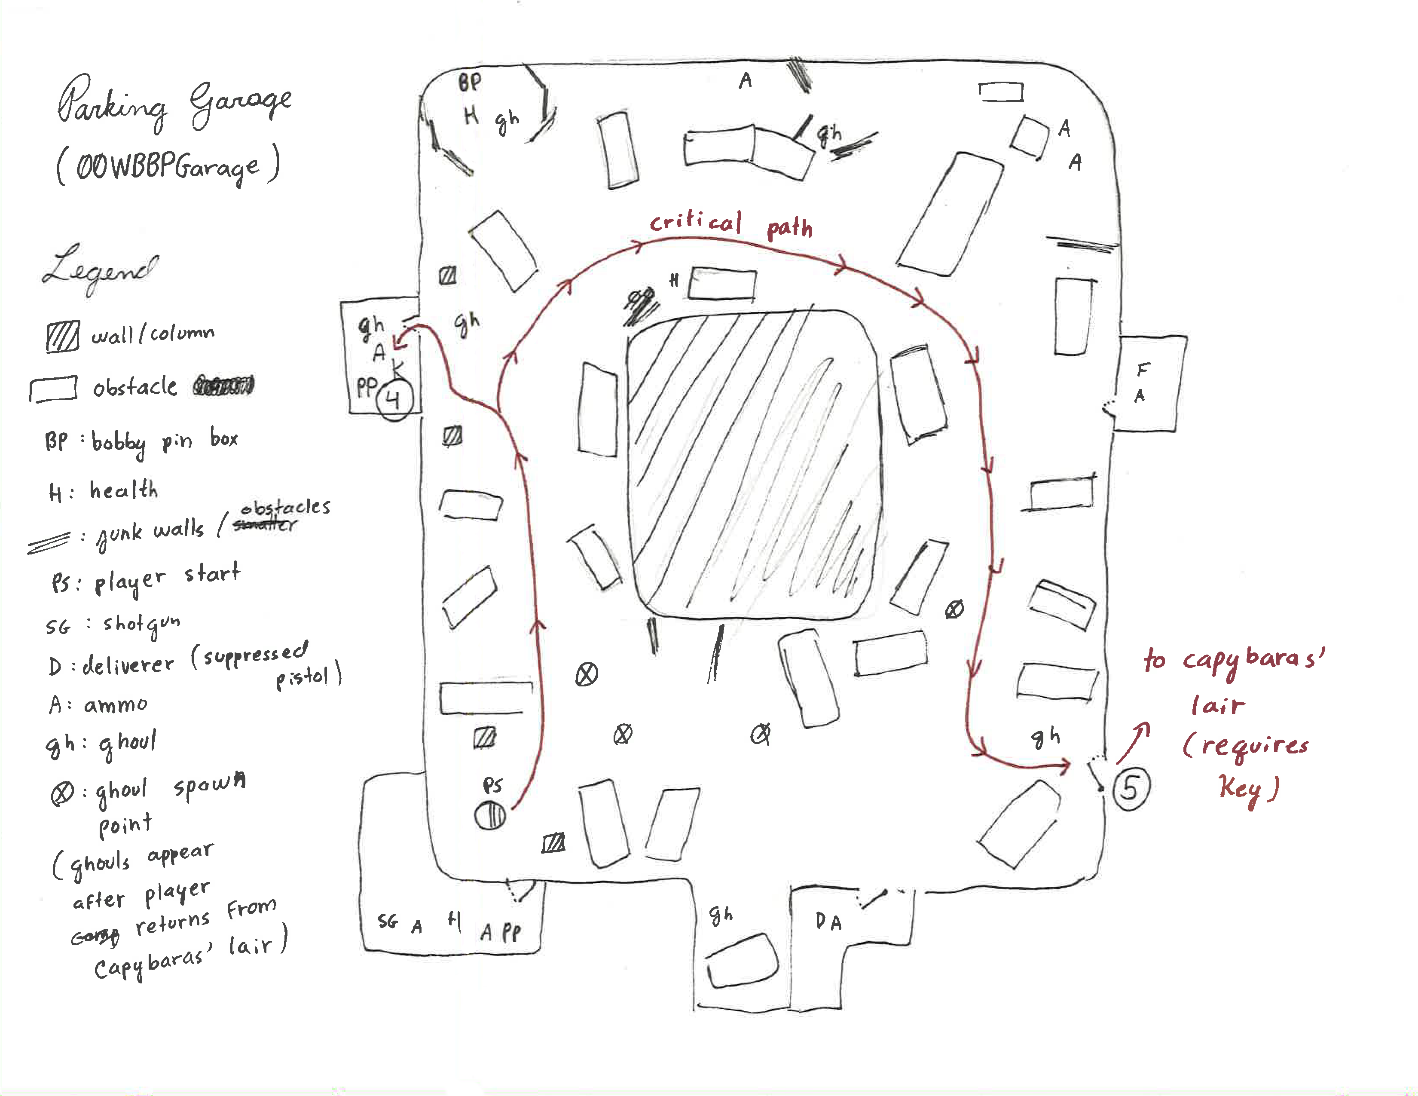 Parking Garage
(00WBBPGarage)
Legend
wall/column
obstacle
BP : bobby pin box
H : health
: junk walls / obstacles
PS : player start
SG : shotgun
D : deliverer (suppressed
pistol)
A : ammo
gh : ghoul
: ghoul spawn
point
(ghouls appear
after player
returns from
Capybaras' lair)
BP
H gh
A
gh
A
A
critical path
H
gh
gh
A
K
PP
4
F
A
PS
gh
5
to capybaras'
lair
(requires
Key)
SG A H A PP
gh
DA